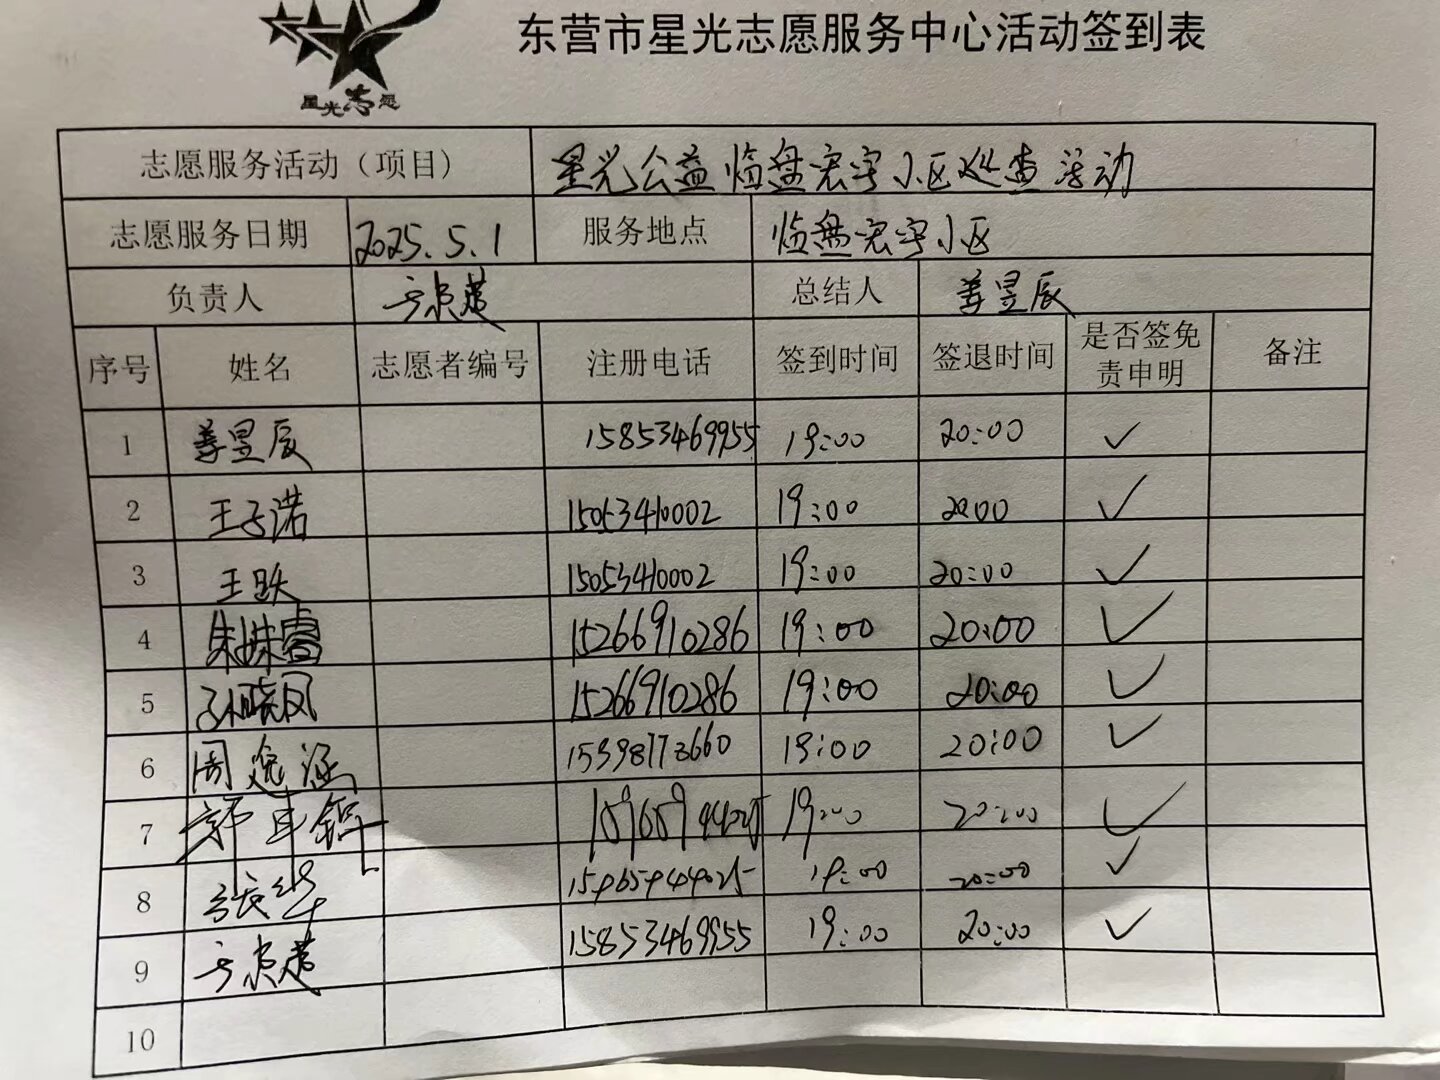 星光志愿
东营市星光志愿服务中心活动签到表
志愿服务活动（项目） 星光公益临盘宏宇小区巡查活动
志愿服务日期 2025.5.1 服务地点 临盘宏宇小区
负责人 总结人 昱辰
序号 姓名 志愿者编号 注册电话 签到时间 签退时间 是否签免责申明 备注
1 昱辰 15853469955 19:00 20:00 ✓
2 王子诺 15053410002 19:00 20:00 ✓
3 王跃 15053410002 19:00 20:00 ✓
4 朱姝睿 15266910286 19:00 20:00 ✓
5 孙晓凤 15266910286 19:00 20:00 ✓
6 周逸涵 19:00 20:00 ✓
7 19:00 20:00 ✓
8 张华 19:00 20:00 ✓
9 15853469955 19:00 20:00 ✓
10